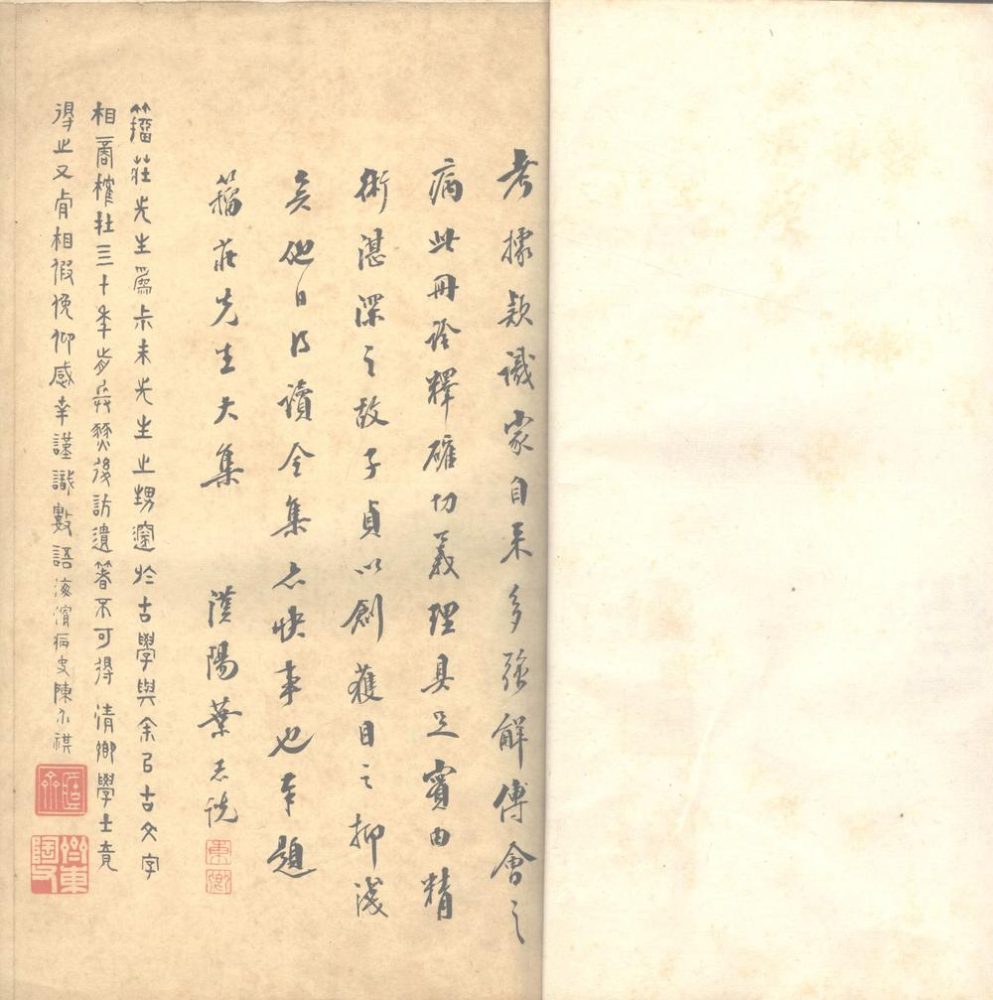 考據款識家自來多強解傅會之
病此冊詮釋確切義理具足實由精
術湛深之故子貞以創獲目之抑淺
矣他日得讀全集亦快事也奉題
籀莊先生大集 漢陽葉志詵
東卿
籀莊先生爲尗未先生之甥邃於古學與余㠯古文字
相商榷在三十年歬兵燹後訪遺箸不可得 清卿學士竟
得之又肯相假俛仰感幸謹識數語海濱病史陳介祺
簠齋
齊東陶父